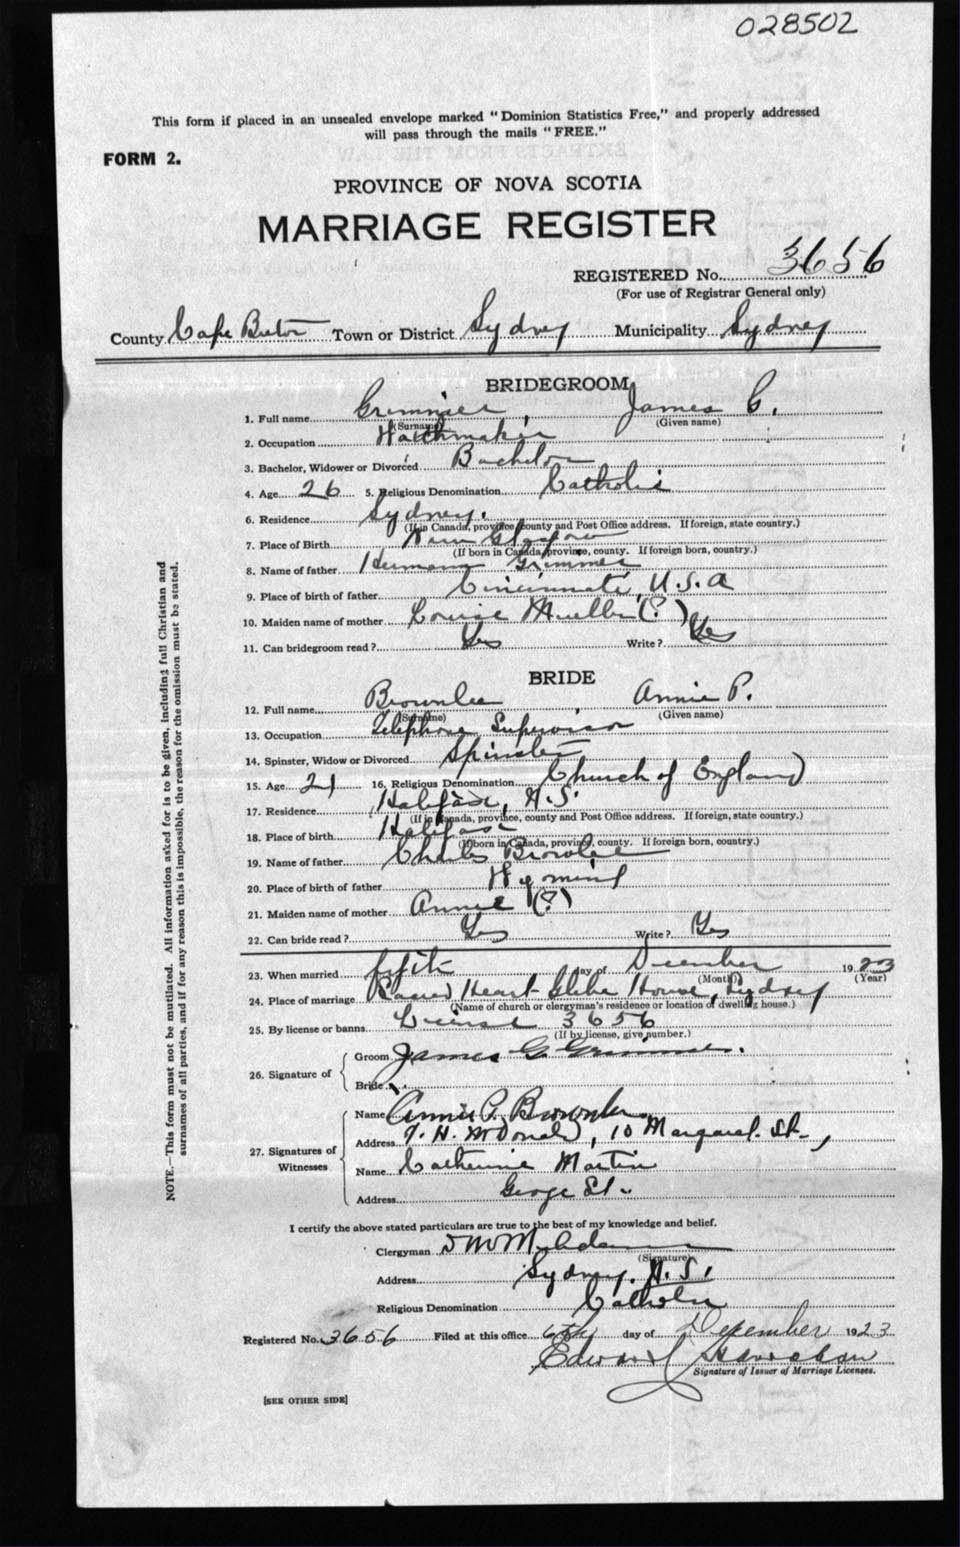 028502
This form if placed in an unsealed envelope marked "Dominion Statistics Free," and properly addressed
will pass through the mails "FREE."
FORM 2.
PROVINCE OF NOVA SCOTIA
MARRIAGE REGISTER
REGISTERED No. 3656
(For use of Registrar General only)
County Cape Breton Town or District Sydney Municipality Sydney
BRIDEGROOM
1. Full name Grimmer, James C.
(Surname) (Given name)
2. Occupation Watchmaker
3. Bachelor, Widower or Divorced Bachelor
4. Age 26 5. Religious Denomination Catholic
6. Residence Sydney.
(If in Canada, province county and Post Office address. If foreign, state country.)
7. Place of Birth New Glasgow
(If born in Canada, province, county. If foreign born, country.)
8. Name of father Grimmer
9. Place of birth of father Cincinnati, U.S.A
10. Maiden name of mother Louise Mueller (?)
11. Can bridegroom read? Yes Write? Yes
BRIDE
12. Full name Brownlee Annie P.
(Surname) (Given name)
13. Occupation Telephone Supervisor
14. Spinster, Widow or Divorced Spinster
15. Age 21 16. Religious Denomination Church of England
17. Residence Halifax, N.S.
(If in Canada, province, county and Post Office address. If foreign, state country.)
18. Place of birth Halifax
(If born in Canada, province, county. If foreign born, country.)
19. Name of father Charles Brownlee
20. Place of birth of father Wyoming
21. Maiden name of mother Annie (?)
22. Can bride read? Yes Write? Yes
23. When married fifth day of December 1923
(Month) (Year)
24. Place of marriage Sacred Heart Glebe House, Sydney
(Name of church or clergyman's residence or location of dwelling house.)
25. By license or banns License 3656
(If by license, give number.)
26. Signature of
Groom James G. Grimmer.
Bride
27. Signatures of Witnesses
Name Annie P. Brownlee
Address H. McDonald, 10 Margaret St.,
Name Catherine Martin
Address George St.
I certify the above stated particulars are true to the best of my knowledge and belief.
Clergyman
(Signature)
Address Sydney. N.S.
Religious Denomination Catholic
Registered No. 3656 Filed at this office 6th day of December 1923
Edward
Signature of Issuer of Marriage Licenses.
[SEE OTHER SIDE]
NOTE.—This form must not be mutilated. All information asked for is to be given, including full Christian and
surnames of all parties, and if for any reason this is impossible, the reason for the omission must be stated.